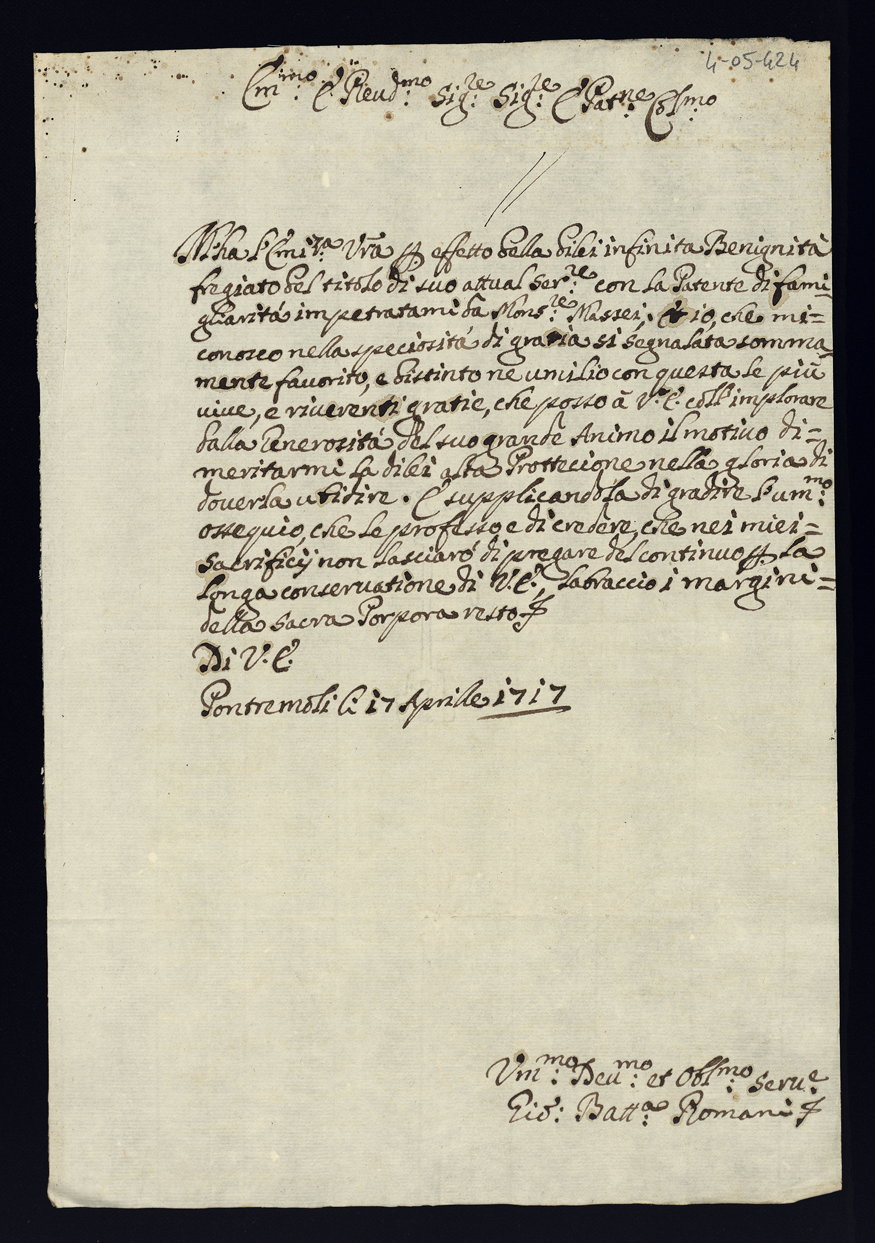 4-05-424
Em.mo e Reud.mo Sig.re Sig.re e Pat.ne Col.mo
M'ha l'Emi.za Vra p effetto della di lei infinita Benignità
fregiato del titolo di suo attual Ser.re con la Patente di fami-
gliarità impetratami da Mons.re Massei. Et io, che mi=
conosco nella speciosità di gratia si segnalata somma-
mente favorito, e distinto ne umilio con questa le più
vive, e riverenti gratie, che posso à V.E. coll' implorare
dalla Generosità del suo grande Animo il motivo di=
meritarmi la di lei alta Prottecione nella gloria di
doverla ubidire. E supplicandola di gradire l'um.mo
ossequio, che le professo e di credere, che nei miei=
Sacrificij non lasciarò di pregare del continuo p la
longa conservatione di V.E., la braccio i margini=
della Sacra Porpora resto
Di V.E.
Pontremoli li 17 Aprille 1717
Um.mo Deu.mo et Obl.mo Seru.e
Gio: Batt.a Romani